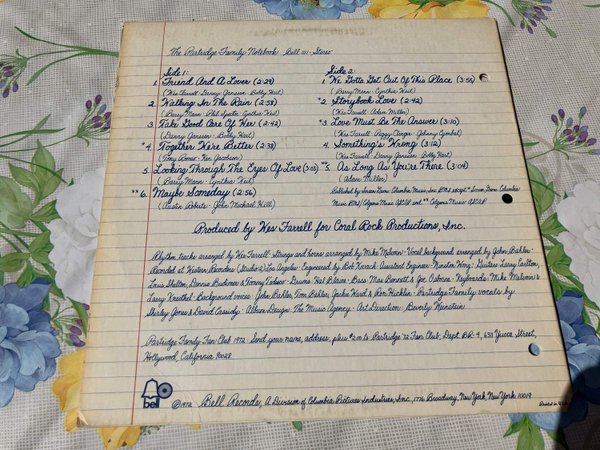 The Partridge Family Notebook Bell 1111 Stereo
Side 1:
1. Friend And A Lover (2:29)
(Wes Farrell · Danny Janssen · Bobby Hart)
2. Walking In The Rain (2:58)
(Barry Mann · Phil Spector · Cynthia Weil)
3. Take Good Care Of Her (2:42)
(Danny Janssen · Bobby Hart)
*4. Together We're Better (2:38)
(Tony Romeo · Ken Jacobson)
5. Looking Through The Eyes Of Love (3:03)
(Barry Mann · Cynthia Weil)
**6. Maybe Someday (2:56)
(Austin Roberts · John Michael Hill)
Side 2:
1. We Gotta Get Out Of This Place (3:56)
(Barry Mann · Cynthia Weil)
*2. Storybook Love (2:42)
(Wes Farrell · Adam Miller)
*3. Love Must Be The Answer (3:10)
(Wes Farrell · Peggy Clinger · Johnny Cymbal)
4. Something's Wrong (3:12)
(Wes Farrell · Danny Janssen · Bobby Hart)
**5. As Long As You're There (3:04)
(Adam Miller)
Published by Screen Gems Columbia Music, Inc. (BMI) except * Screen Gems Columbia
Music (BMI) Colgems Music (ASCAP) and ** Colgems Music ASCAP
Produced by Wes Farrell for Coral Rock Productions, Inc.
Rhythm tracks arranged by Wes Farrell · Strings and horns arranged by Mike Melvoin · Vocal background arranged by John Bahler ·
Recorded at Western Recorders (Studio 2) Los Angeles · Engineered by Bob Kovach Assistant Engineer · Winston Wong · Guitars Larry Carlton,
Louis Shelton, Dennis Budimir & Tommy Tedesco · Drums Hal Blaine · Bass: Max Bennett & Joe Osborn · Keyboards: Mike Melvoin &
Larry Knechtel · Background voices: John Bahler, Tom Bahler, Jackie Ward & Ron Hicklin · Partridge Family vocals by
Shirley Jones & David Cassidy · Album Design: The Music Agency · Art Direction: Beverly Weinstein
Partridge Family Fan Club 1972 Send your name, address, plus $2.00 to Partridge '72 Fan Club, Dept. BR-4, 6311 Yucca Street,
Hollywood, California 90028.
bell
©1972 Bell Records, A Division of Columbia Pictures Industries, Inc., 1776 Broadway, New York, New York 10019
Printed in U.S.A.